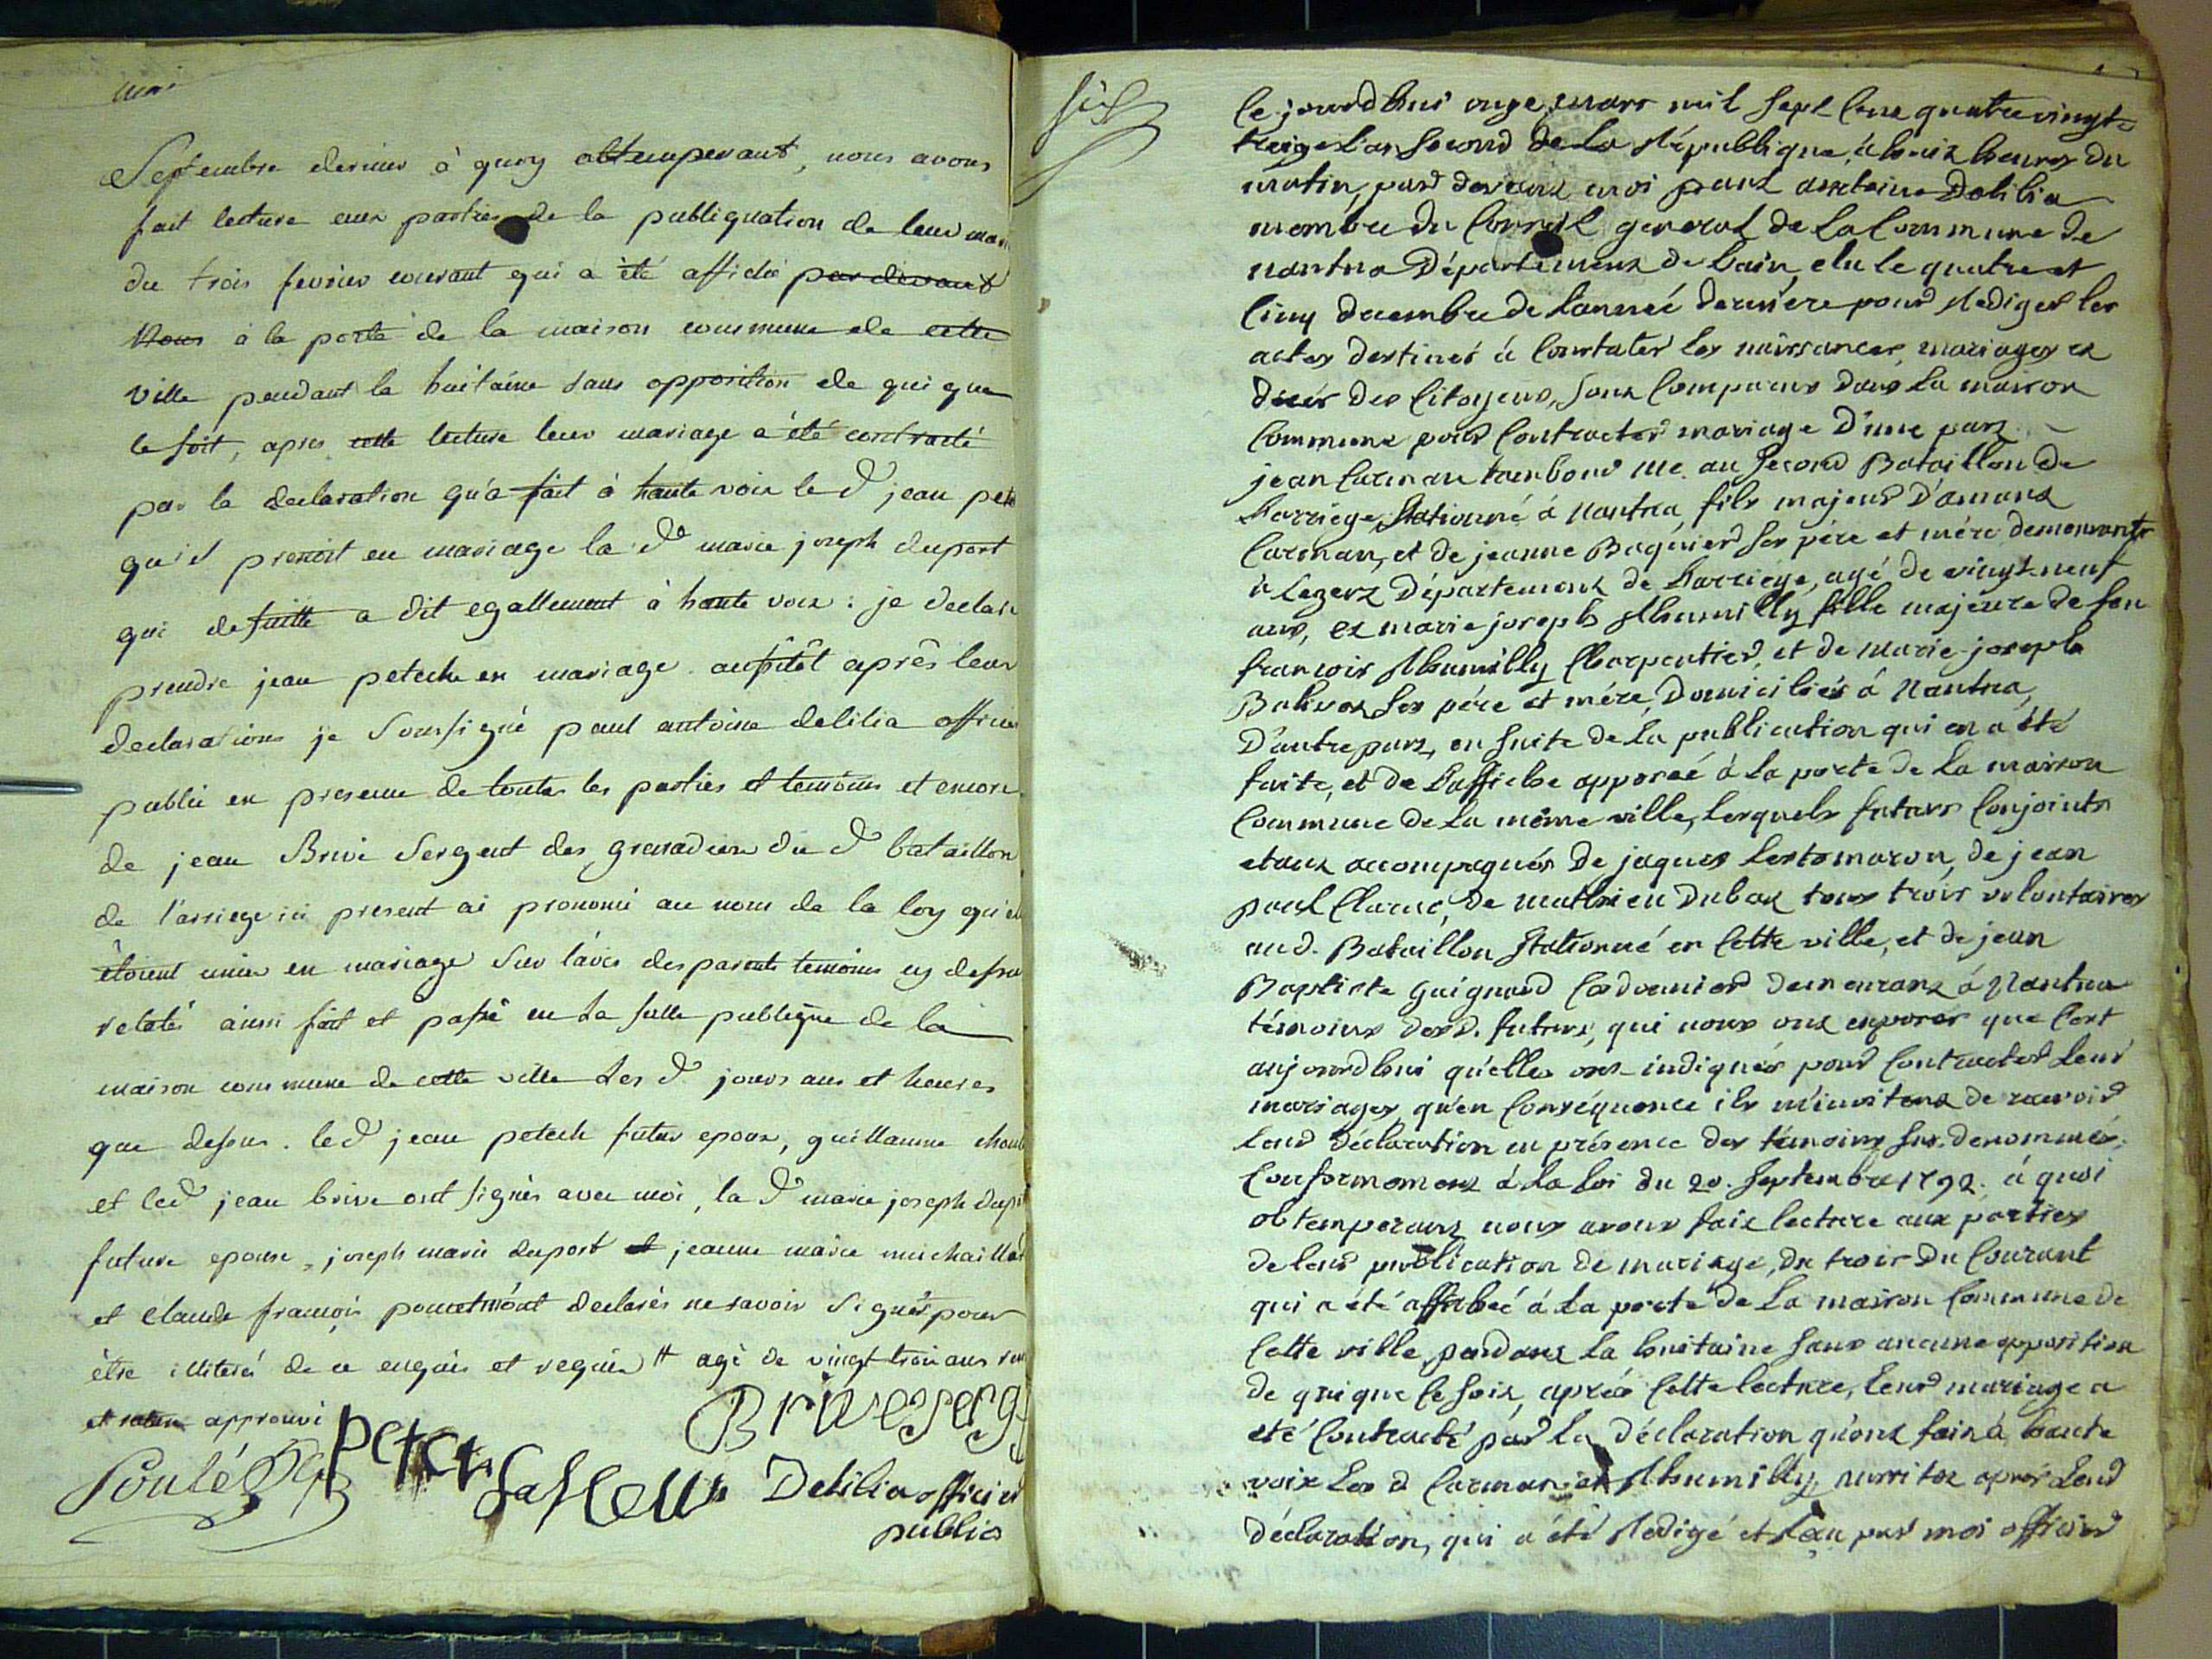 Septembre dernier à quoy obtemperant, nous avons
fait lecture aux parties de la publiquation de leur
du trois fevrier courant qui a été affiché par devant
Nous à la porte de la maison commune de cette
ville pendant la huitaine sans opposition de qui que
ce soit, apres cette lecture leur mariage a été contracté
par la declaration qu'a fait à haute voix le d jean
qu'il prenoit en mariage la de marie joseph duport
qui de suitte a dit egallement à haute voix : je declare
prendre jean petech en mariage. aussitôt après leur
declarations je soussigné paul antoine delilia officier
public en presence de toutes les parties et temoins et encore
de jean Brive Sergent des grenadiers du d bataillon
de l'arriege ici present ai prononcé au nom de la loy qu'
étoient unies en mariage sur l'avis des parents temoins cy dessus
relatés ainsi fait et passé en la salle publique de la
maison commune de cette ville Les d jours ans et heures
que dessus. led jean petech futur epoux, guillaume
et led jean brive ont signés avec moi, la d marie joseph
future epouse, joseph marie duport et jeanne marie michaillat
et claude françois declarés ne savoir signer pour
être illiterés de ce enquis et requis # agé de vingt trois ans
et approuvé
Brive serg
petech
Delilia officier
public
Ce jourdhui onze mars mil sept cent quatre vingt
treize l'an second de la République, à huit heures du
matin, par devant moi paul antoine Delilia
membre du Conseil general de la Commune de
nantua Département de Lain, elu le quatre et
cinq decembre de l'année derniere pour Rediger les
actes destinés à Constater les naissances, mariages et
décés des Citoyens, sont Comparus dans la maison
Commune pour Contracter mariage D'une part
jean Carman tambour Me. au second Bataillon de
Larriege, stationné à Nantua, fils majeur D'amant
Carman, et de jeanne Baquier ses pére et mére demeurants
à Lezert Département de Larriége, agé de vingt neuf
ans, et marie joseph Rhumilly fille majeure de feu
francois Rhumilly Charpentier, et de marie josepha
ses pére et mére, Domiciliés à Nantua,
D'autre part, en suite de la publication qui en a été
faite, et de L'affiche apposeé à la porte de la maison
Commune de la même ville, lesquels futurs Conjoints
etant accompagnés de jaques de jean
paul Clarac, de mathieu Dubak tous trois volontaires
aud. Bataillon stationné en Cette ville, et de jean
Baptiste Guignard Cordonnier Demeurant à Nantua
témoins desd. futurs, qui nous ont exposés que C'est
aujourdhui qu'elles ont indiqués pour Contracter Leur
mariages, qu'en Conséquence ils m'invitent de recevoir
Leur Déclaration en présence des témoins sus-denommés.
Conformement à la Loi du 20. Septembre 1792. à quoi
obtemperant nous avons fait lecture aux parties
de leur publication de mariage, du trois Du Courant
qui a été affichée à la porte de la maison Commune de
Cette ville, pendant la huitaine sans aucune opposition
de qui que Ce soit, aprés Cette lecture, Leur mariage a
eté Contracté par la déclaration qu'ont fait à haute
voix Les d Carman et Rhumilly, aussitot après Leur
déclaration, qui a été Redigé et par moi officier